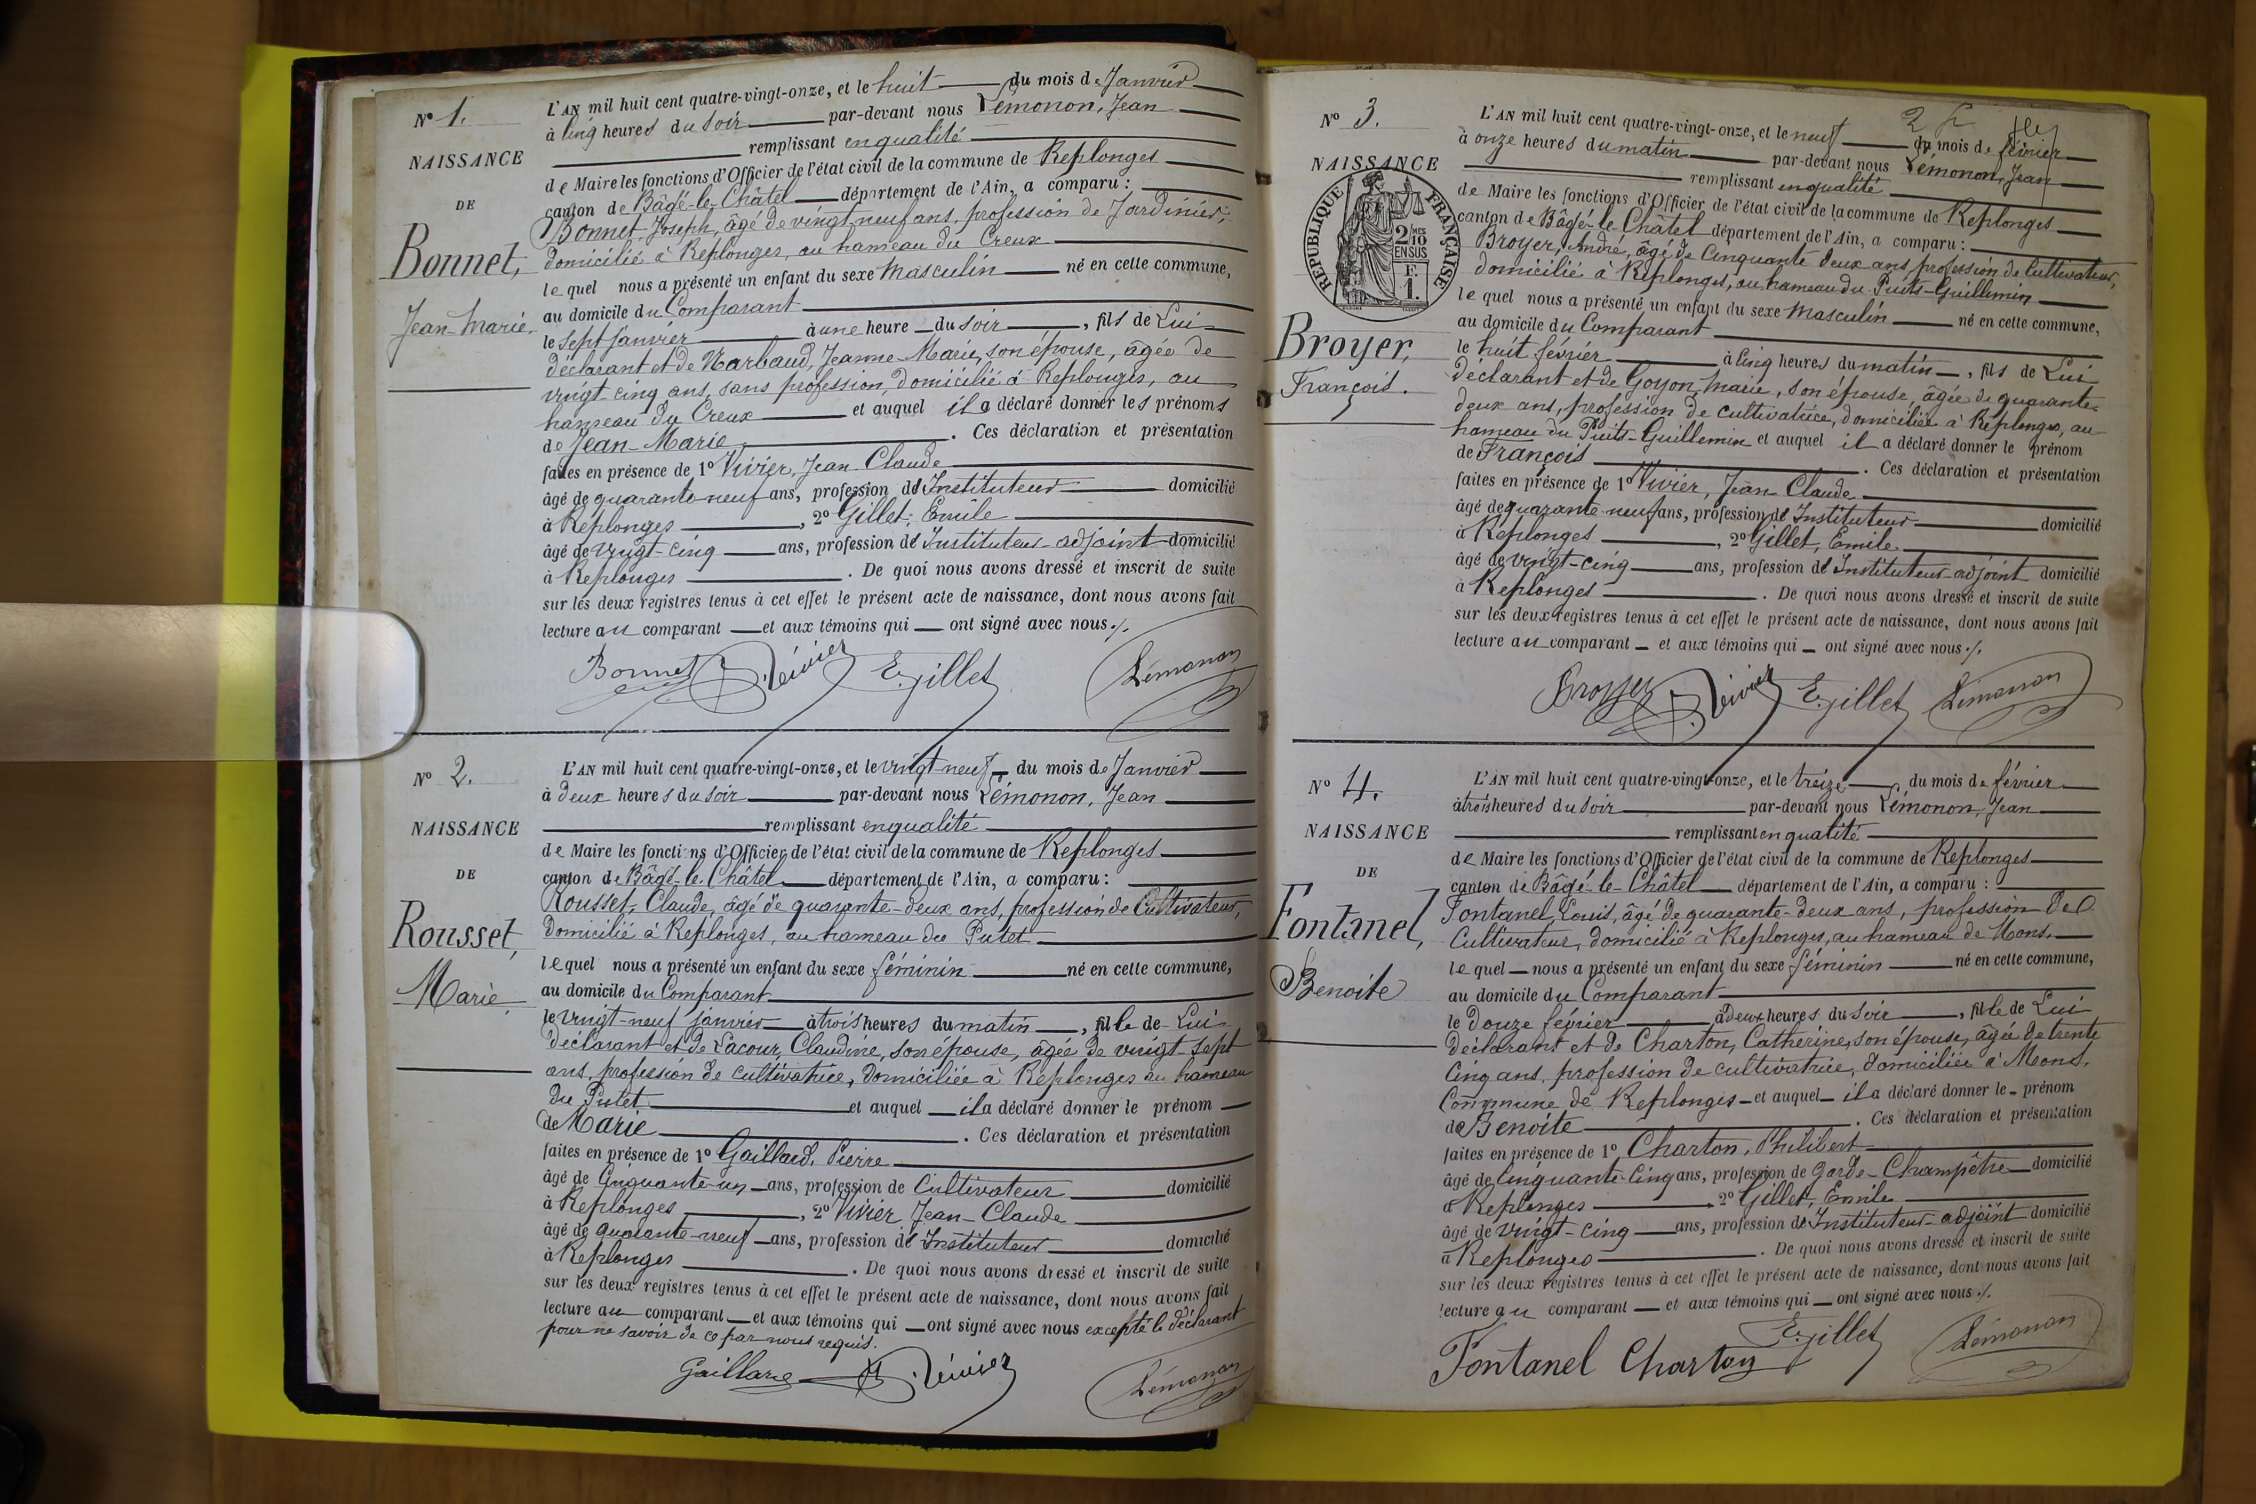 N° 1.
NAISSANCE
DE
Bonnet,
Jean-Marie.
L'AN mil huit cent quatre-vingt-onze, et le huit du mois de Janvier
à cinq heures du soir par-devant nous Lémonon, Jean
remplissant en qualité
de Maire les fonctions d'Officier de l'état civil de la commune de Replonges
canton de Bâgé-le-Châtel département de l'Ain, a comparu :
Bonnet, Joseph, âgé de vingt-neuf ans, profession de Jardinier,
domicilié à Replonges, au hameau du Creux
lequel nous a présenté un enfant du sexe masculin né en cette commune,
au domicile du Comparant
le sept janvier à une heure du soir, fils de Lui
déclarant et de Narbaud, Jeanne-Marie, son épouse, âgée de
vingt-cinq ans, sans profession, domiciliée à Replonges, au
hameau du Creux et auquel il a déclaré donner les prénoms
de Jean-Marie. Ces déclaration et présentation
faites en présence de 1° Vivier, Jean-Claude
âgé de quarante-neuf ans, profession d'Instituteur domicilié
à Replonges, 2° Gillet, Emile
âgé de vingt-cinq ans, profession d'Instituteur-adjoint domicilié
à Replonges. De quoi nous avons dressé et inscrit de suite
sur les deux registres tenus à cet effet le présent acte de naissance, dont nous avons fait
lecture au comparant et aux témoins qui ont signé avec nous ./.
Bonnet Vivier E. Gillet Lémonon
N° 2.
NAISSANCE
DE
Rousset,
Marie
L'AN mil huit cent quatre-vingt-onze, et le vingt-neuf du mois de Janvier
à deux heures du soir par-devant nous Lémonon, Jean
remplissant en qualité
de Maire les fonctions d'Officier de l'état civil de la commune de Replonges
canton de Bâgé-le-Châtel département de l'Ain, a comparu :
Rousset, Claude, âgé de quarante-deux ans, profession de Cultivateur,
domicilié à Replonges, au hameau du Putet
lequel nous a présenté un enfant du sexe féminin né en cette commune,
au domicile du Comparant
le vingt-neuf janvier à trois heures du matin, fille de Lui
déclarant et de Lacour, Claudine, son épouse, âgée de vingt-sept
ans, profession de cultivatrice, domiciliée à Replonges au hameau
du Putet et auquel il a déclaré donner le prénom
de Marie. Ces déclaration et présentation
faites en présence de 1° Gaillard, Pierre
âgé de Cinquante-un ans, profession de Cultivateur domicilié
à Replonges, 2° Vivier Jean-Claude
âgé de quarante-neuf ans, profession d'Instituteur domicilié
à Replonges. De quoi nous avons dressé et inscrit de suite
sur les deux registres tenus à cet effet le présent acte de naissance, dont nous avons fait
lecture au comparant et aux témoins qui ont signé avec nous excepté le déclarant
pour ne savoir de ce par nous requis.
Gaillard Vivier Lémonon
2 f
N° 3.
NAISSANCE
RÉPUBLIQUE FRANÇAISE
2 MES
10
EN SUS
F.
1.
Broyer,
François.
L'AN mil huit cent quatre-vingt-onze, et le neuf du mois de février
à onze heures du matin par-devant nous Lémonon, Jean
remplissant en qualité
de Maire les fonctions d'Officier de l'état civil de la commune de Replonges
canton de Bâgé-le-Châtel département de l'Ain, a comparu :
Broyer, André, âgé de Cinquante-deux ans, profession de Cultivateur,
domicilié à Replonges, au hameau du Puits-Guillemin
lequel nous a présenté un enfant du sexe masculin né en cette commune,
au domicile du Comparant
le huit février à cinq heures du matin, fils de Lui
déclarant et de Goyon, Marie, son épouse, âgée de quarante-
deux ans, profession de cultivatrice, domiciliée à Replonges, au
hameau du Puits-Guillemin et auquel il a déclaré donner le prénom
de François. Ces déclaration et présentation
faites en présence de 1° Vivier, Jean-Claude
âgé de quarante-neuf ans, profession d'Instituteur domicilié
à Replonges, 2° Gillet, Emile
âgé de vingt-cinq ans, profession d'Instituteur-adjoint domicilié
à Replonges. De quoi nous avons dressé et inscrit de suite
sur les deux registres tenus à cet effet le présent acte de naissance, dont nous avons fait
lecture au comparant et aux témoins qui ont signé avec nous ./.
Broyer Vivier E. Gillet Lémonon
N° 4.
NAISSANCE
DE
Fontanel,
Benoite
L'AN mil huit cent quatre-vingt-onze, et le treize du mois de février
à trois heures du soir par-devant nous Lémonon, Jean
remplissant en qualité
de Maire les fonctions d'Officier de l'état civil de la commune de Replonges
canton de Bâgé-le-Châtel département de l'Ain, a comparu :
Fontanel, Louis, âgé de quarante-deux ans, profession de
Cultivateur, domicilié à Replonges, au hameau de Mons.
lequel nous a présenté un enfant du sexe féminin né en cette commune,
au domicile du Comparant
le douze février à deux heures du soir, fille de Lui
déclarant et de Charton, Catherine, son épouse, âgée de trente
Cinq ans, profession de cultivatrice, domiciliée à Mons,
Commune de Replonges et auquel il a déclaré donner le prénom
de Benoite. Ces déclaration et présentation
faites en présence de 1° Charton, Philibert
âgé de Cinquante-Cinq ans, profession de garde-Champêtre domicilié
à Replonges 2° Gillet, Emile
âgé de vingt-cinq ans, profession d'Instituteur-adjoint domicilié
à Replonges. De quoi nous avons dressé et inscrit de suite
sur les deux registres tenus à cet effet le présent acte de naissance, dont nous avons fait
lecture au comparant et aux témoins qui ont signé avec nous ./.
Fontanel Charton E. Gillet Lémonon